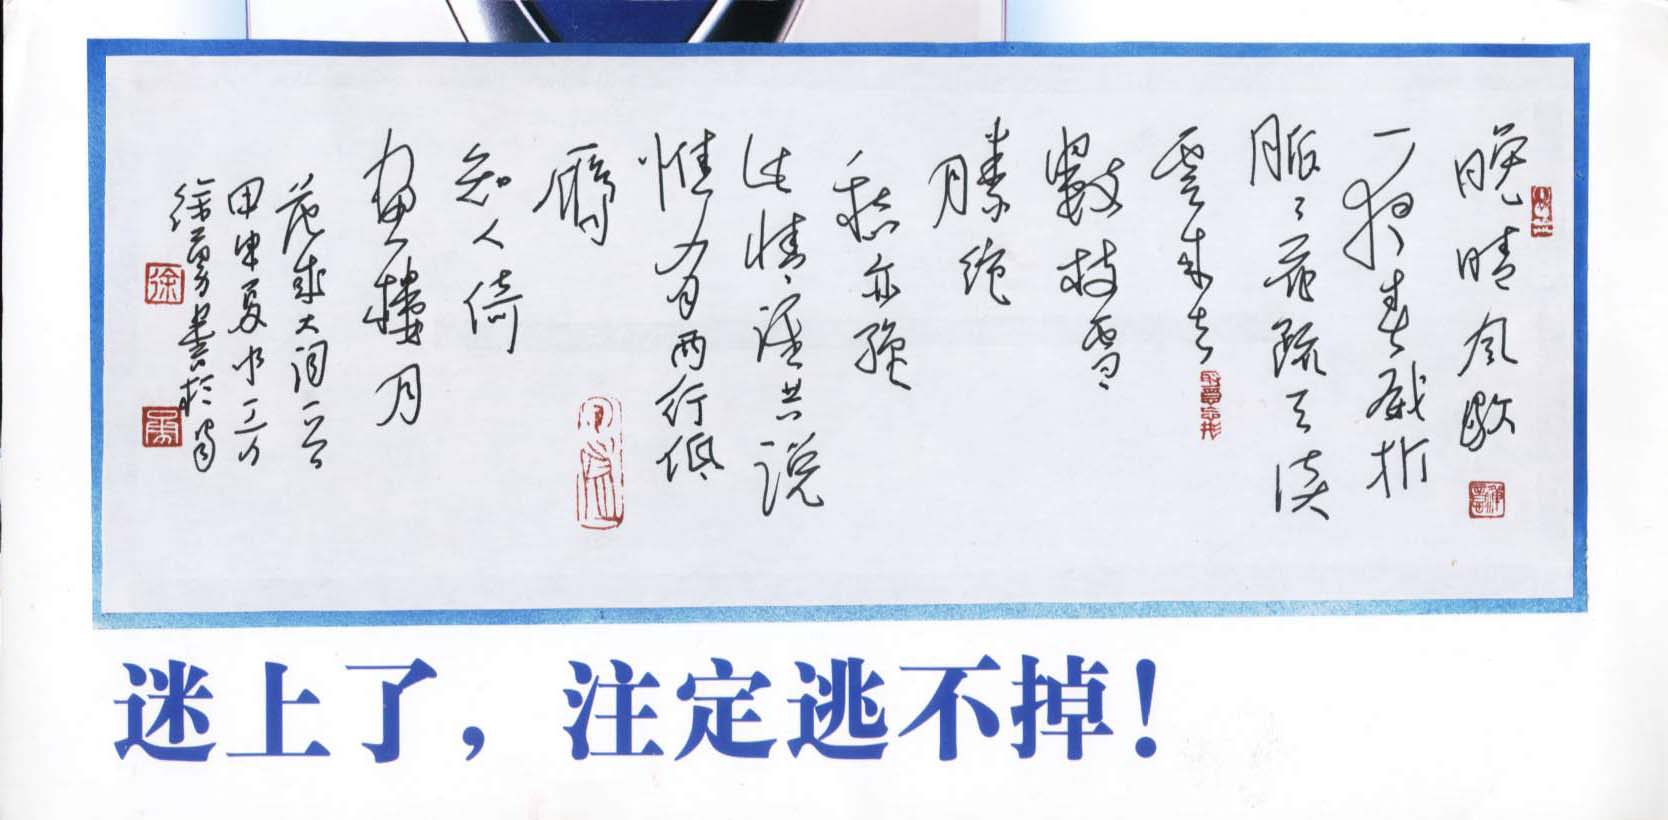 晚晴风歇
一夜春威折
脈〻花疏天淡
雲来去
數枝雪
勝绝
愁亦绝
此情谁共说
惟有两行低
雁
知人倚
画樓月
范成大词一首
甲申夏
徐 书於
徐
迷上了，注定逃不掉！